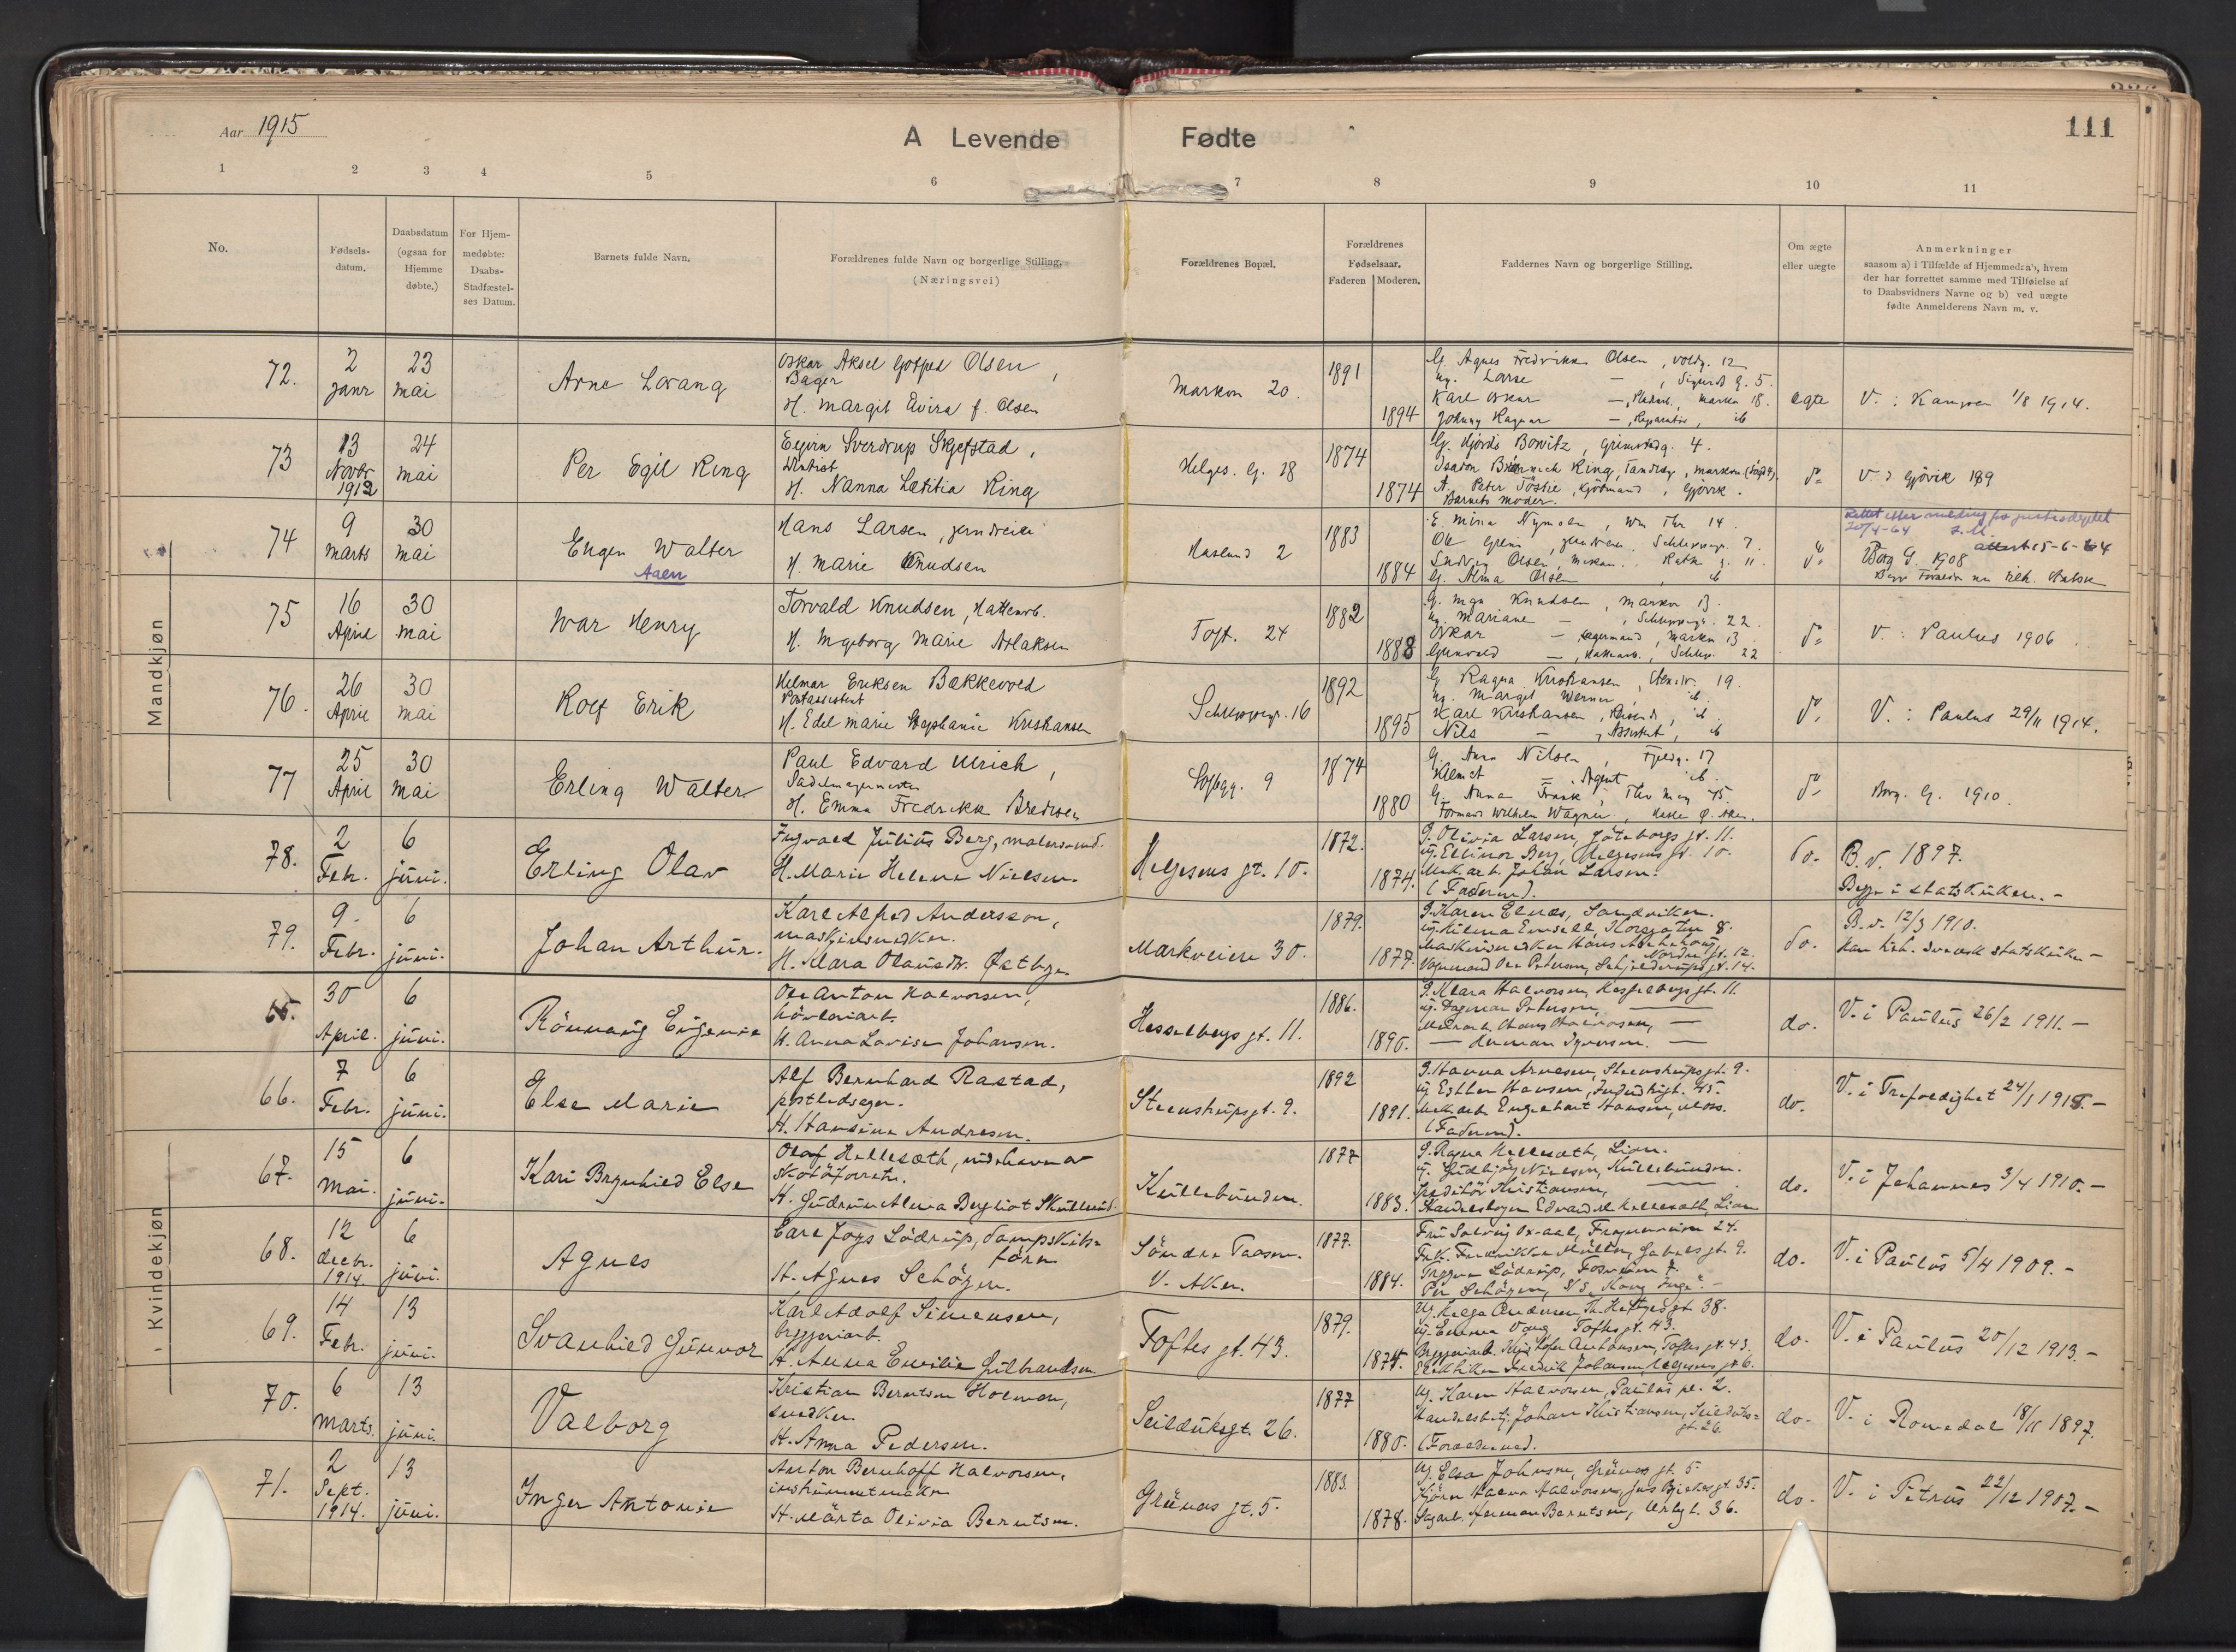 Aar 1915
A Levende Fødte
111
1 2 3 4 5 6 7 8 9 10 11
No.
Fødsels-
datum.
Daabsdatum
(ogsaa for
Hjemme
døbte.)
For Hjem-
medøbte:
Daabs-
Stadfæstel-
ses Datum.
Barnets fulde Navn.
Forældrenes fulde Navn og borgerlige Stilling.
(Næringsvei)
Forældrenes Bopæl.
Forældrenes
Fødselsaar.
Faderen Moderen.
Faddernes Navn og borgerlige Stilling.
Om ægte
eller uægte
Anmerkninger
saasom a) i Tilfælde af Hjemmedaab, hvem
der har forrettet samme med Tilføielse af
to Daabsvidners Navne og b) ved uægte
fødte Anmelderens Navn m. v.
Mandkjøn
72.
2
janr
23
mai
Arne Lorang
Oskar Aksel Olsen,
Bager
H. Margit Elvira f. Olsen
Markvn 20.
1891
1894
G. Agnes Fredrikke Olsen, Voldg. 12
Karl Oskar
Johnny Ragnar
egte
V. i Kampen 1/8 1914.
73
13
Novbr
1912
24
mai
Per Egil Ring
Eyvin Sverdrup Skjefstad,
Dentist
H. Nanna Lætitia Ring
Helges. G. 28
1874
1874
G. Hjørdis Bowitz, Grimstadg. 4.
A. Peter Töstie, Kjöbmand, Gjövik.
Barnets moder.
do
V. i Gjövik 189
74
9
marts
30
mai
Eugen Walter
Aaen
Hans Larsen, jerndreier
H. Marie Knudsen
Haslund 2
1883
1884
E. Mina Nymoen, Wm Thr 14.
G. Alma Olsen, ib
do
20/4-64
attest 15-6-64
Borg G. 1908
75
16
April
30
mai
Ivar Henry
Torvald Knudsen, Hattearb.
H. Ingeborg Marie Aslaksen
Toft. 24
1882
1888
G. Inga Knudsen, Markvn 13.
Ug. Mariane — , Schleppegr. 22.
Oskar — Lagermand, Markvn 13.
Gunvald — , Hattearb., Schlep. 22
do
V. i Paulus 1906
76.
26
April
30
mai
Rolf Erik
Helmar Eriksen Bakkevold
Postassistent
H. Edel Marie Stephanie Kristiansen
Schleppegr. 16
1892
1895
G. Ragna Kristiansen, 19.
Ug. Margit Werner, ib
Karl Kristiansen, ib
Nils — , Assistent, ib
do
V. i Paulus 29/11 1914.
77
25
April
30
mai
Erling Walter
Paul Edvard Ulrich,
Sadelmagermester
H. Emma Fredrikke Bredesen
Sofbgg. 9
1874
1880
G. Anna Nilsen, Fjeldg. 17
G. Anna Frank, Thv Mey. 45
Formand Wilhelm Wagner,
do
Borg. G. 1910.
78.
2
Febr.
6
juni.
Erling Olav
Ingvald Julius Berg, malersvend.
H. Marie Helene Nielsen.
Helgesens gt. 10.
1872.
1874.
G. Olivia Larsen, Göteborgs gt. 11.
Ug. Ellinor Berg, Helgesens gt. 10.
Mek. arb. Johan Larsen.
(Faderen).
do.
B.v. 1897.
Begge i statskirken.-
79.
9.
Febr.
6
juni.
Johan Arthur.
Karl Alfred Andersson,
maskinsnedker.
H. Klara Olausdtr. Østbye
Markveien 30.
1879.
1877.
G. Karen Elnæs, Sandviken.
Nordre gt. 12.
Vognmand Ole Petersen, Schjelderups gt. 14.
do.
B.v. 12/3 1910.
Han tilh. svensk statskirke.-
Kvindekjøn
65.
30
April.
6
juni.
Rönnaug Eugenie
Ole Anton Halvorsen,
hövleriarb.
H. Anna Lovise Johansen.
Hesselbergs gt. 11.
1886.
1890.
G. Klara Halvorsen, Hesselbergs gt. 11.
Ug. Dagmar Petersen, —
Mekarb. Hans Halvorsen, —
— Herman Syversen. —
do.
V. i Paulus 26/2 1911.-
66.
7
Febr.
6
juni.
Else Marie
Alf Bernhard Rastad,
postledsager.
H. Hansine Andresen.
Steenstrups gt. 9.
1892
1891.
G. Hanna Arnesen, Steenstrups gt. 9.
Ug Esther Hansen, Industrigt. 45.
Mek arb. Engelhart Hansen, Moss.
(Faderen).
do.
V. i Trefoldighet 24/1 1915.-
67.
15
Mai.
6
juni.
Kari Brynhild Else
Olaf Hellesæth, indehaver av
skotöiforretn.
H. Gudrun Alma Bergliot Skullerud.
Kullebunden.
1877
1883.
G. Ragna Hellesæth, Lian.
Ug. Gudbjörg Nielsen, Kullebunden.
Speditör Kristiansen, —
Handelsbogh. Edvard M. Hellesæth, Lian
do.
V. i Johannes 3/4 1910.-
68.
12
decbr.
1914.
6
juni.
Agnes
Carl Joys Lödrup, dampskibs-
förer
H. Agnes Schögen.
Söndre Taasen.
V. Aker.
1877.
1884.
Fru Solveig Ox-aal, Frognerveien 24.
Frk. Fredrikke Müller, Gabels gt. 9.
Trygve Lödrup, Fosveien 7.
Per Schögen, S/S „Kong Inge".-
do.
V. i Paulus 5/4 1909.-
69.
14
Febr.
13
juni.
Svanhild Gunvor
Karl Adolf Simensen,
bryggeriarb.
H. Anna Emilie Gulbrandsen
Toftes gt. 43.
1879.
1874.
Ug. Helga Andersen Th. Heftyes gt. 38.
Ug. Emma Vang Toftes gt. 43.
Bryggeriarb. Kristofer Antonsen, Toftes gt. 43.
Elektriker Fredrik Johansen, Helgesens gt. 6.
do.
V. i Paulus 20/12 1913.-
70.
6
Marts.
13
juni.
Valborg
Kristian Berntsen Holmen,
snedker.
H. Anna Pedersen.
Seilduksgt. 26.
1877
1880.
Ug. Karen Halvorsen, Paulus pl. 2.
Handelsbetj. Johan Kristiansen, Seilduks-
gt. 26.
(Forældrene).
do.
V. i Romedal 18/11 1897.
71.
2
Sept.
1914.
13
juni.
Inger Antonie
Anton Bernhoff Halvorsen,
instrumentmaker
H. Märta Olivia Berntsen.
Grüners gt. 5.
1883.
1878.
Ug. Elsa Johnsen, Grüners gt. 5.
Sagarb. Herman Berntsen, Urbygt. 36.
do.
V. i Petrus 22/12 1907.-